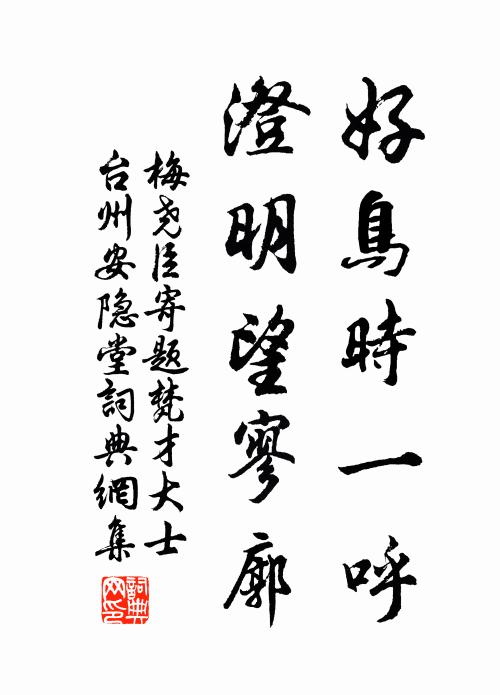 好鳥時一呼
澄明望寥廓
梅堯臣寄題梵才大士
台州安隐堂詞典網集
詞典網印